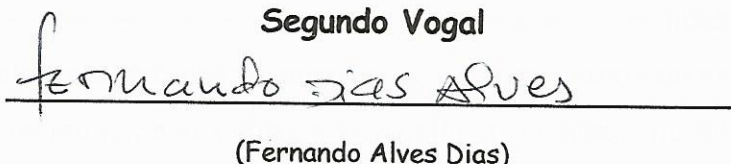 Segundo Vogal
Fernando Dias Alves
(Fernando Alves Dias)